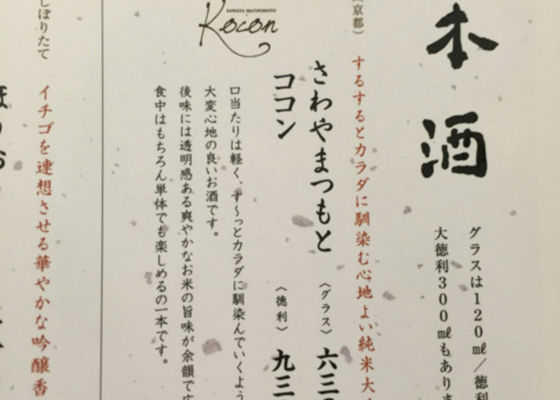 本酒
グラスは120㎖／徳利
大徳利300㎖もありま
（京都）
するするとカラダに馴染む心地よい純米大
さわやまつもと
ココン
〈グラス〉六三
〈徳利〉九三
SAWAYA MATSUMOTO
Kocon
口当たりは軽く、す〜っとカラダに馴染んでいくよう
大変心地の良いお酒です。
後味には透明感ある爽やかなお米の旨味が余韻で広
食中はもちろん単体でも楽しめるの一本です。
しぼりたて
イチゴを連想させる華やかな吟醸香